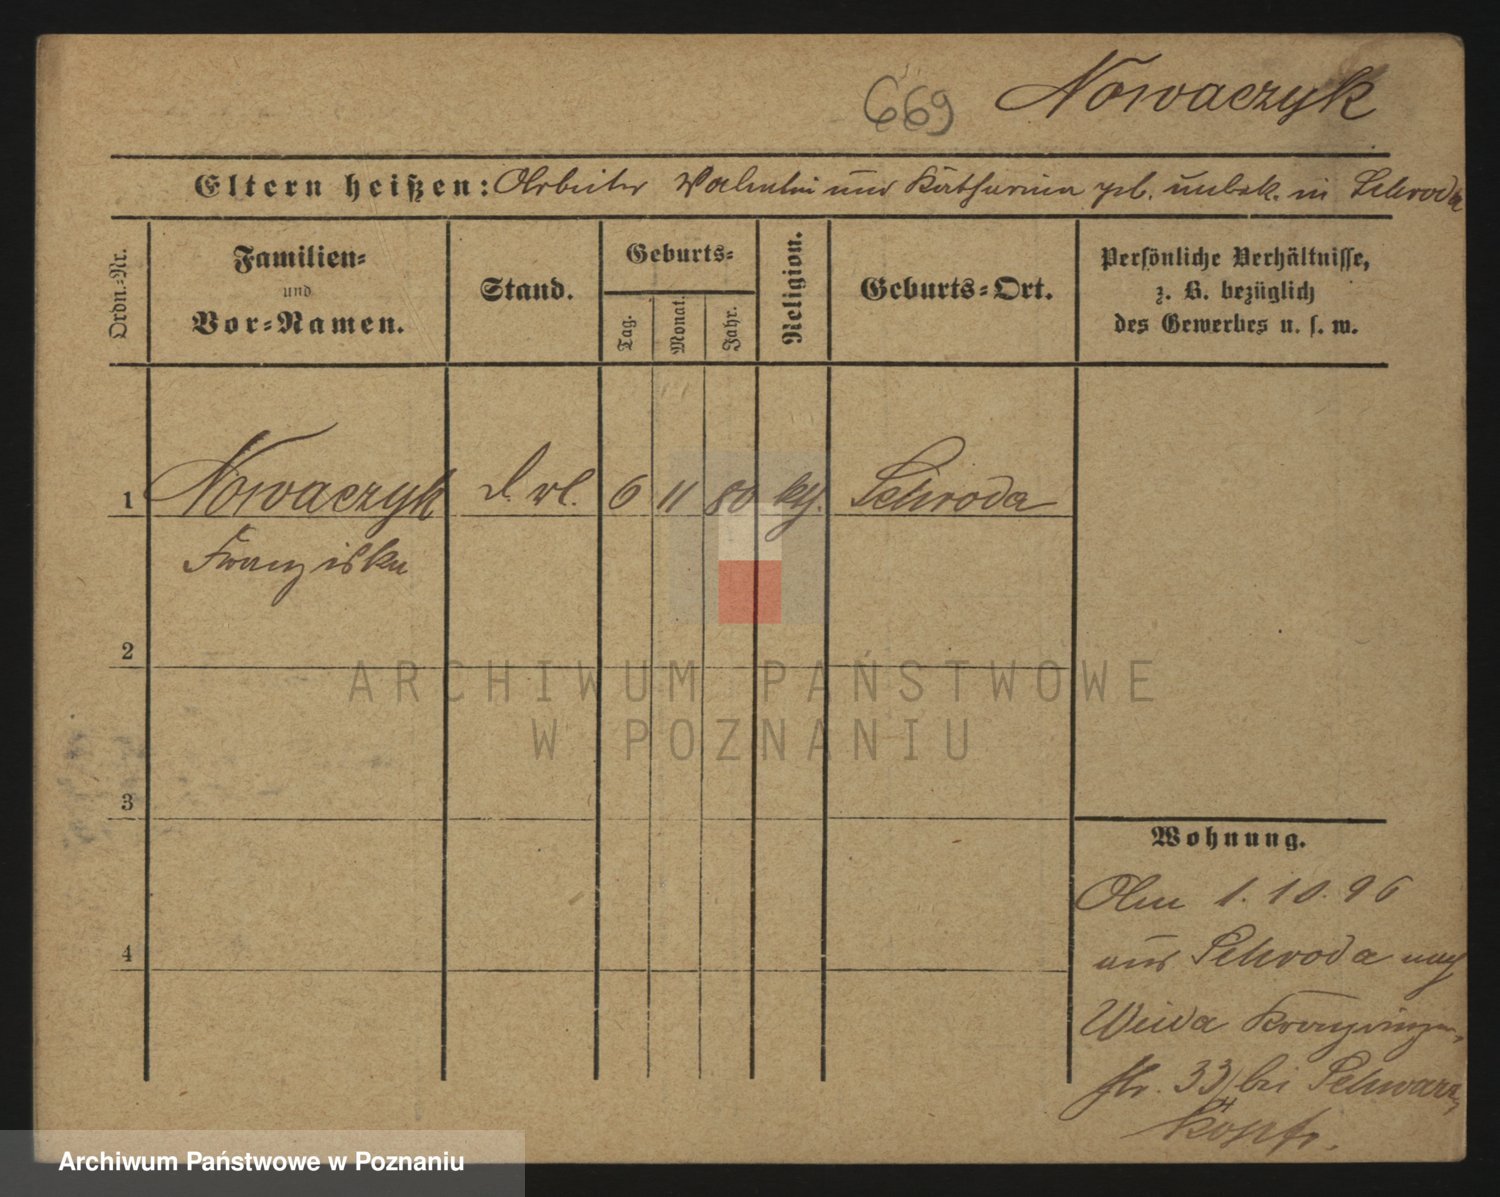 669 Nowaczyk
Eltern heißen: Arbeiter Valentin und Katharina geb. unbek. in Schroda
Ordn.-Nr.
Familien-
und
Vor-Namen.
Stand.
Geburts-
Tag.
Monat.
Jahr.
Religion.
Geburts-Ort.
Persönliche Verhältnisse,
z. B. bezüglich
des Gewerbes u. s. w.
1 Nowaczyk 6 11 80 kth. Schroda
Franziska
2
ARCHIWUM PAŃSTWOWE
W POZNANIU
3
Wohnung.
Am 1.10.96
aus Schroda nach
4
Wilda
str. 33, bei Schwarz
Archiwum Państwowe w Poznaniu